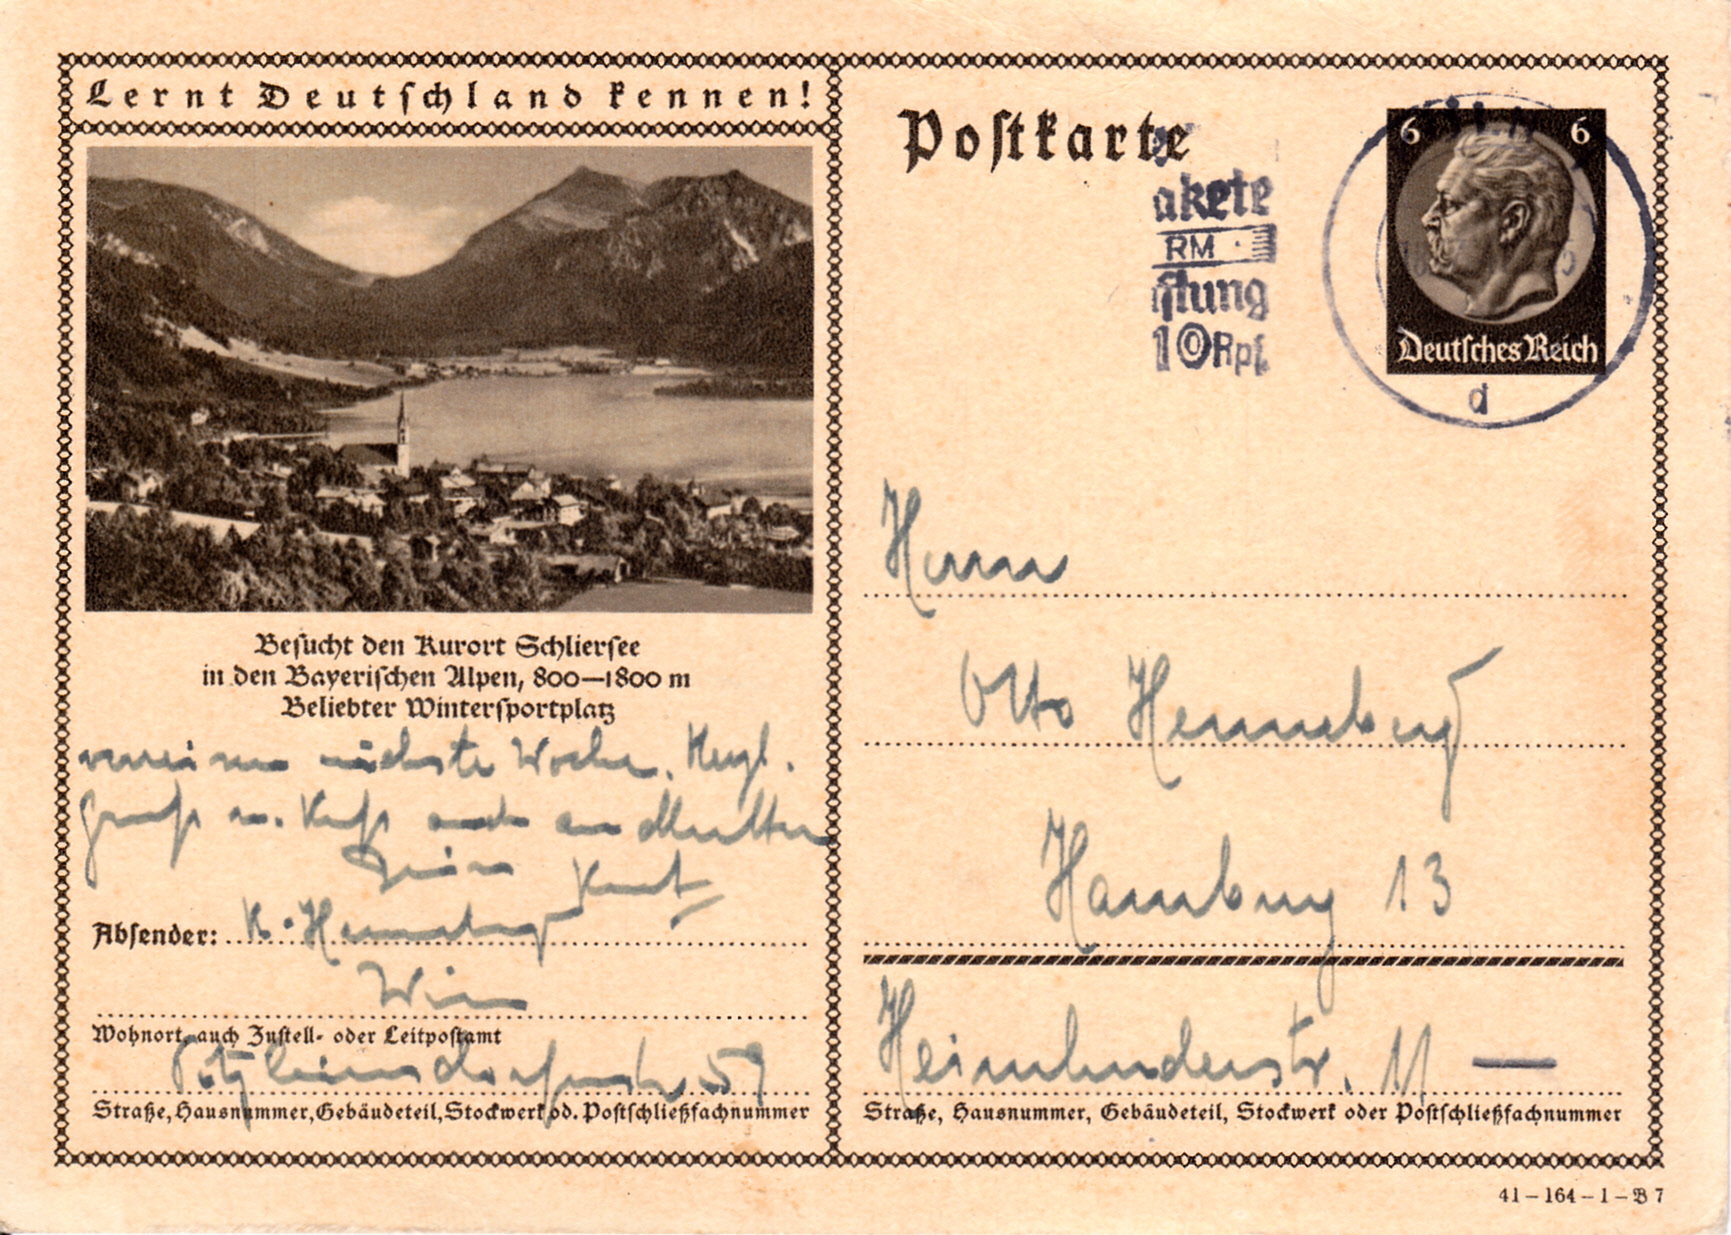 Lernt Deutschland kennen!
Besucht den Kurort Schliersee
in den Bayerischen Alpen, 800—1800 m
Beliebter Wintersportplatz
nächste Woche. Herzl.
Gruß u. Kuß auch an Mutter
Dein Kurt
Absender: K. Henneberg
Wien
Wohnort, auch Zustell- oder Leitpostamt
Pötzleinsdorferstr. 59
Straße, Hausnummer, Gebäudeteil, Stockwerk od. Postschließfachnummer
Postkarte
akete
RM
stung
10 Rpf.
6 6
Deutsches Reich
d
Herrn
Otto Henneberg
Hamburg 13
Heimhuderstr. 11 —
Straße, Hausnummer, Gebäudeteil, Stockwerk oder Postschließfachnummer
41 – 164 – 1 – B 7